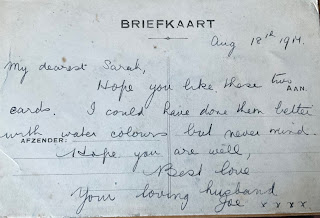 BRIEFKAART
Aug 18th 1914.
My dearest Sarah,
Hope you like these two
AAN.
cards. I could have done them better
with water colours but never mind.
AFZENDER:
Hope you are well,
Best love
Your loving husband
Joe x x x x